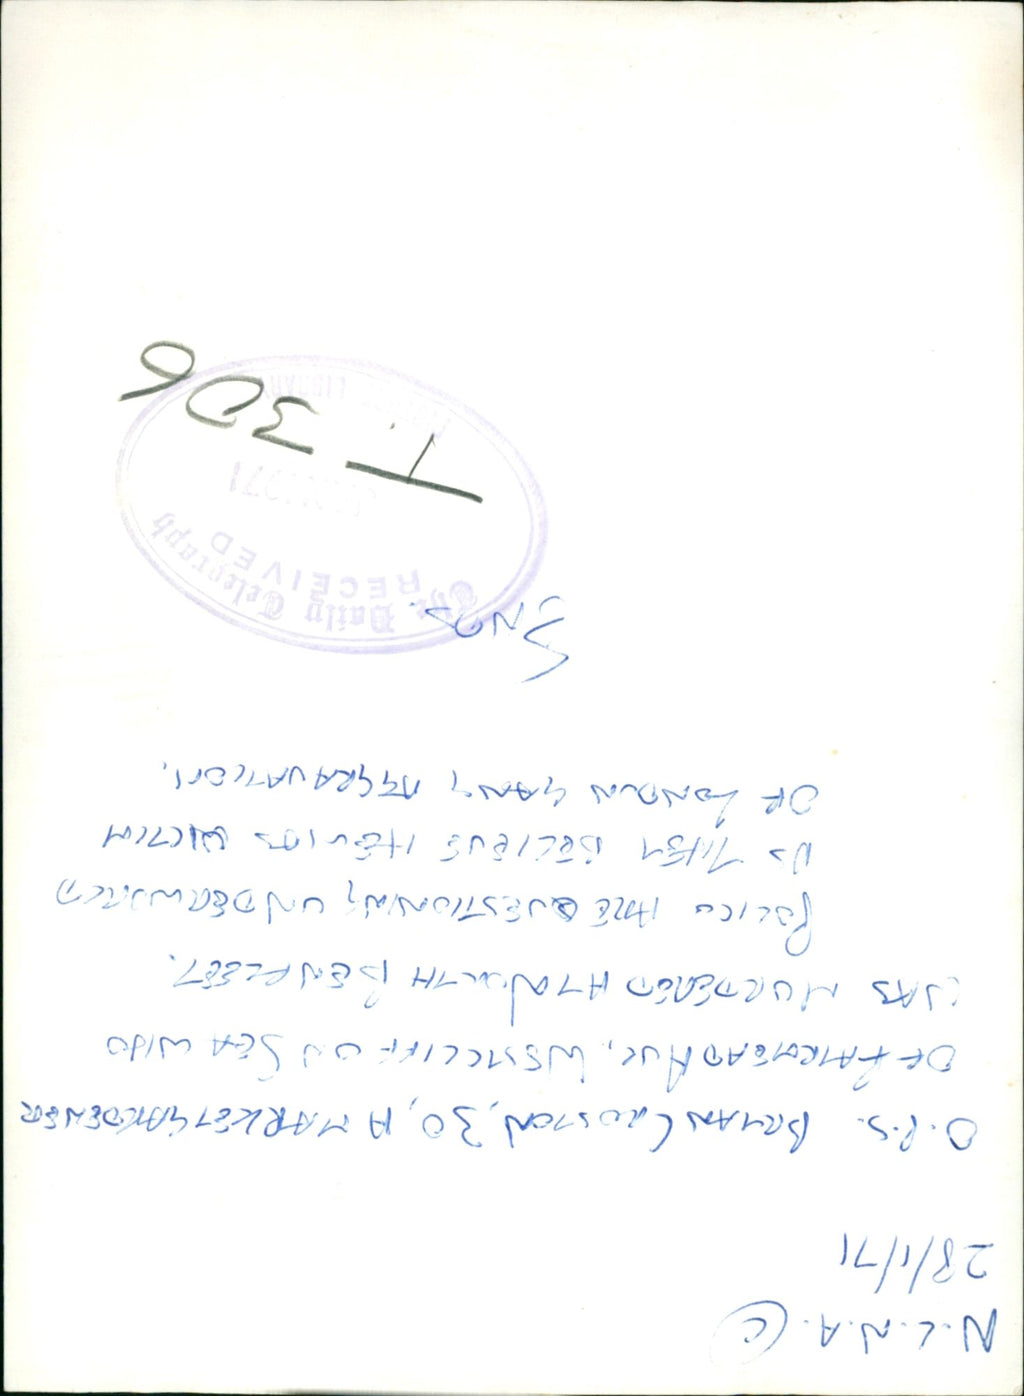 N.L.N.A. (C)
28/1/71
O.P.S. BRYAN CROSTON, 30, A MARKET GARDENER
OF FAIRMEAD AVE, WESTCLIFF ON SEA WHO
WAS MURDERED AT NORTH BENFLEET.
POLICE ARE QUESTIONING UNDERWORLD
AS THEY BELIEVE HE WAS VICTIM
OF LONDON GANG AGGRAVATION.
ENDS.
The Daily Telegraph
RECEIVED
1971
LIBRARY
T 306